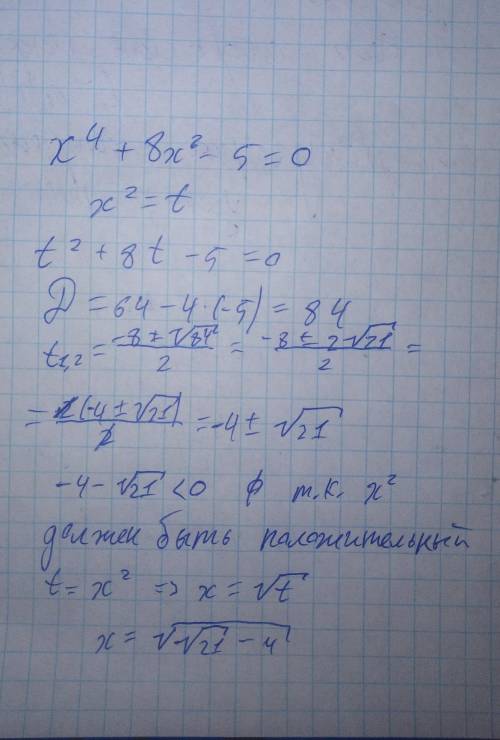 x⁴ + 8x² - 5 = 0
x² = t
t² + 8t - 5 = 0
D = 64 - 4·(-5) = 84
t₁,₂ = (-8 ± √84)/2 = (-8 ± 2√21)/2 =
= 2(-4 ± √21)/2 = -4 ± √21
-4 - √21 < 0 ф т.к. x²
должен быть положительный
t = x² => x = √t
x = √(√21 - 4)